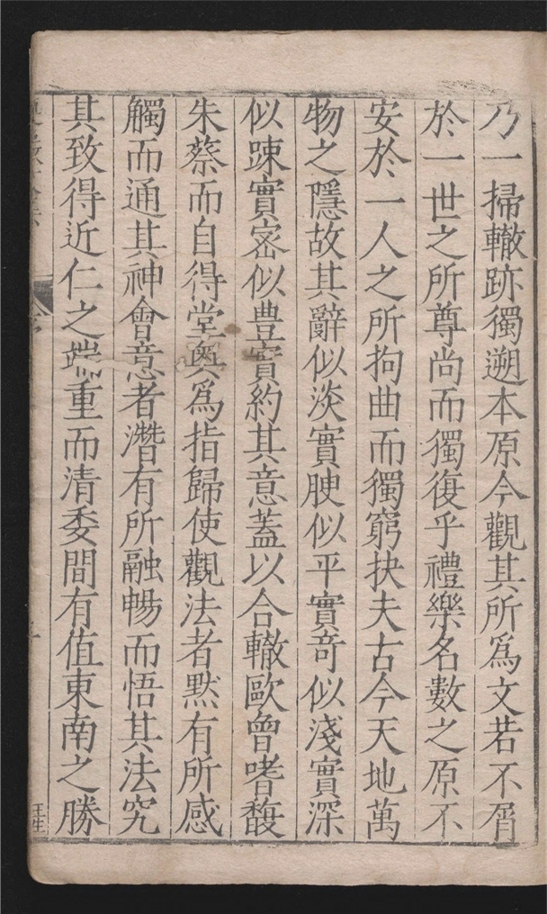 乃一掃轍跡獨遡本原今觀其所為文若不屑
於一世之所尊尚而獨復乎禮樂名數之原不
安於一人之所拘曲而獨窮抉夫古今天地萬
物之隱故其辭似淡實腴似平實奇似淺實深
似踈實宻似豊實約其意蓋以合轍歐曾嗜馥
朱蔡而自得堂奧為指歸使觀法者黙有所感
觸而通其神會意者濳有所融暢而悟其法究
其致得近仁之端重而清委間有值東南之勝